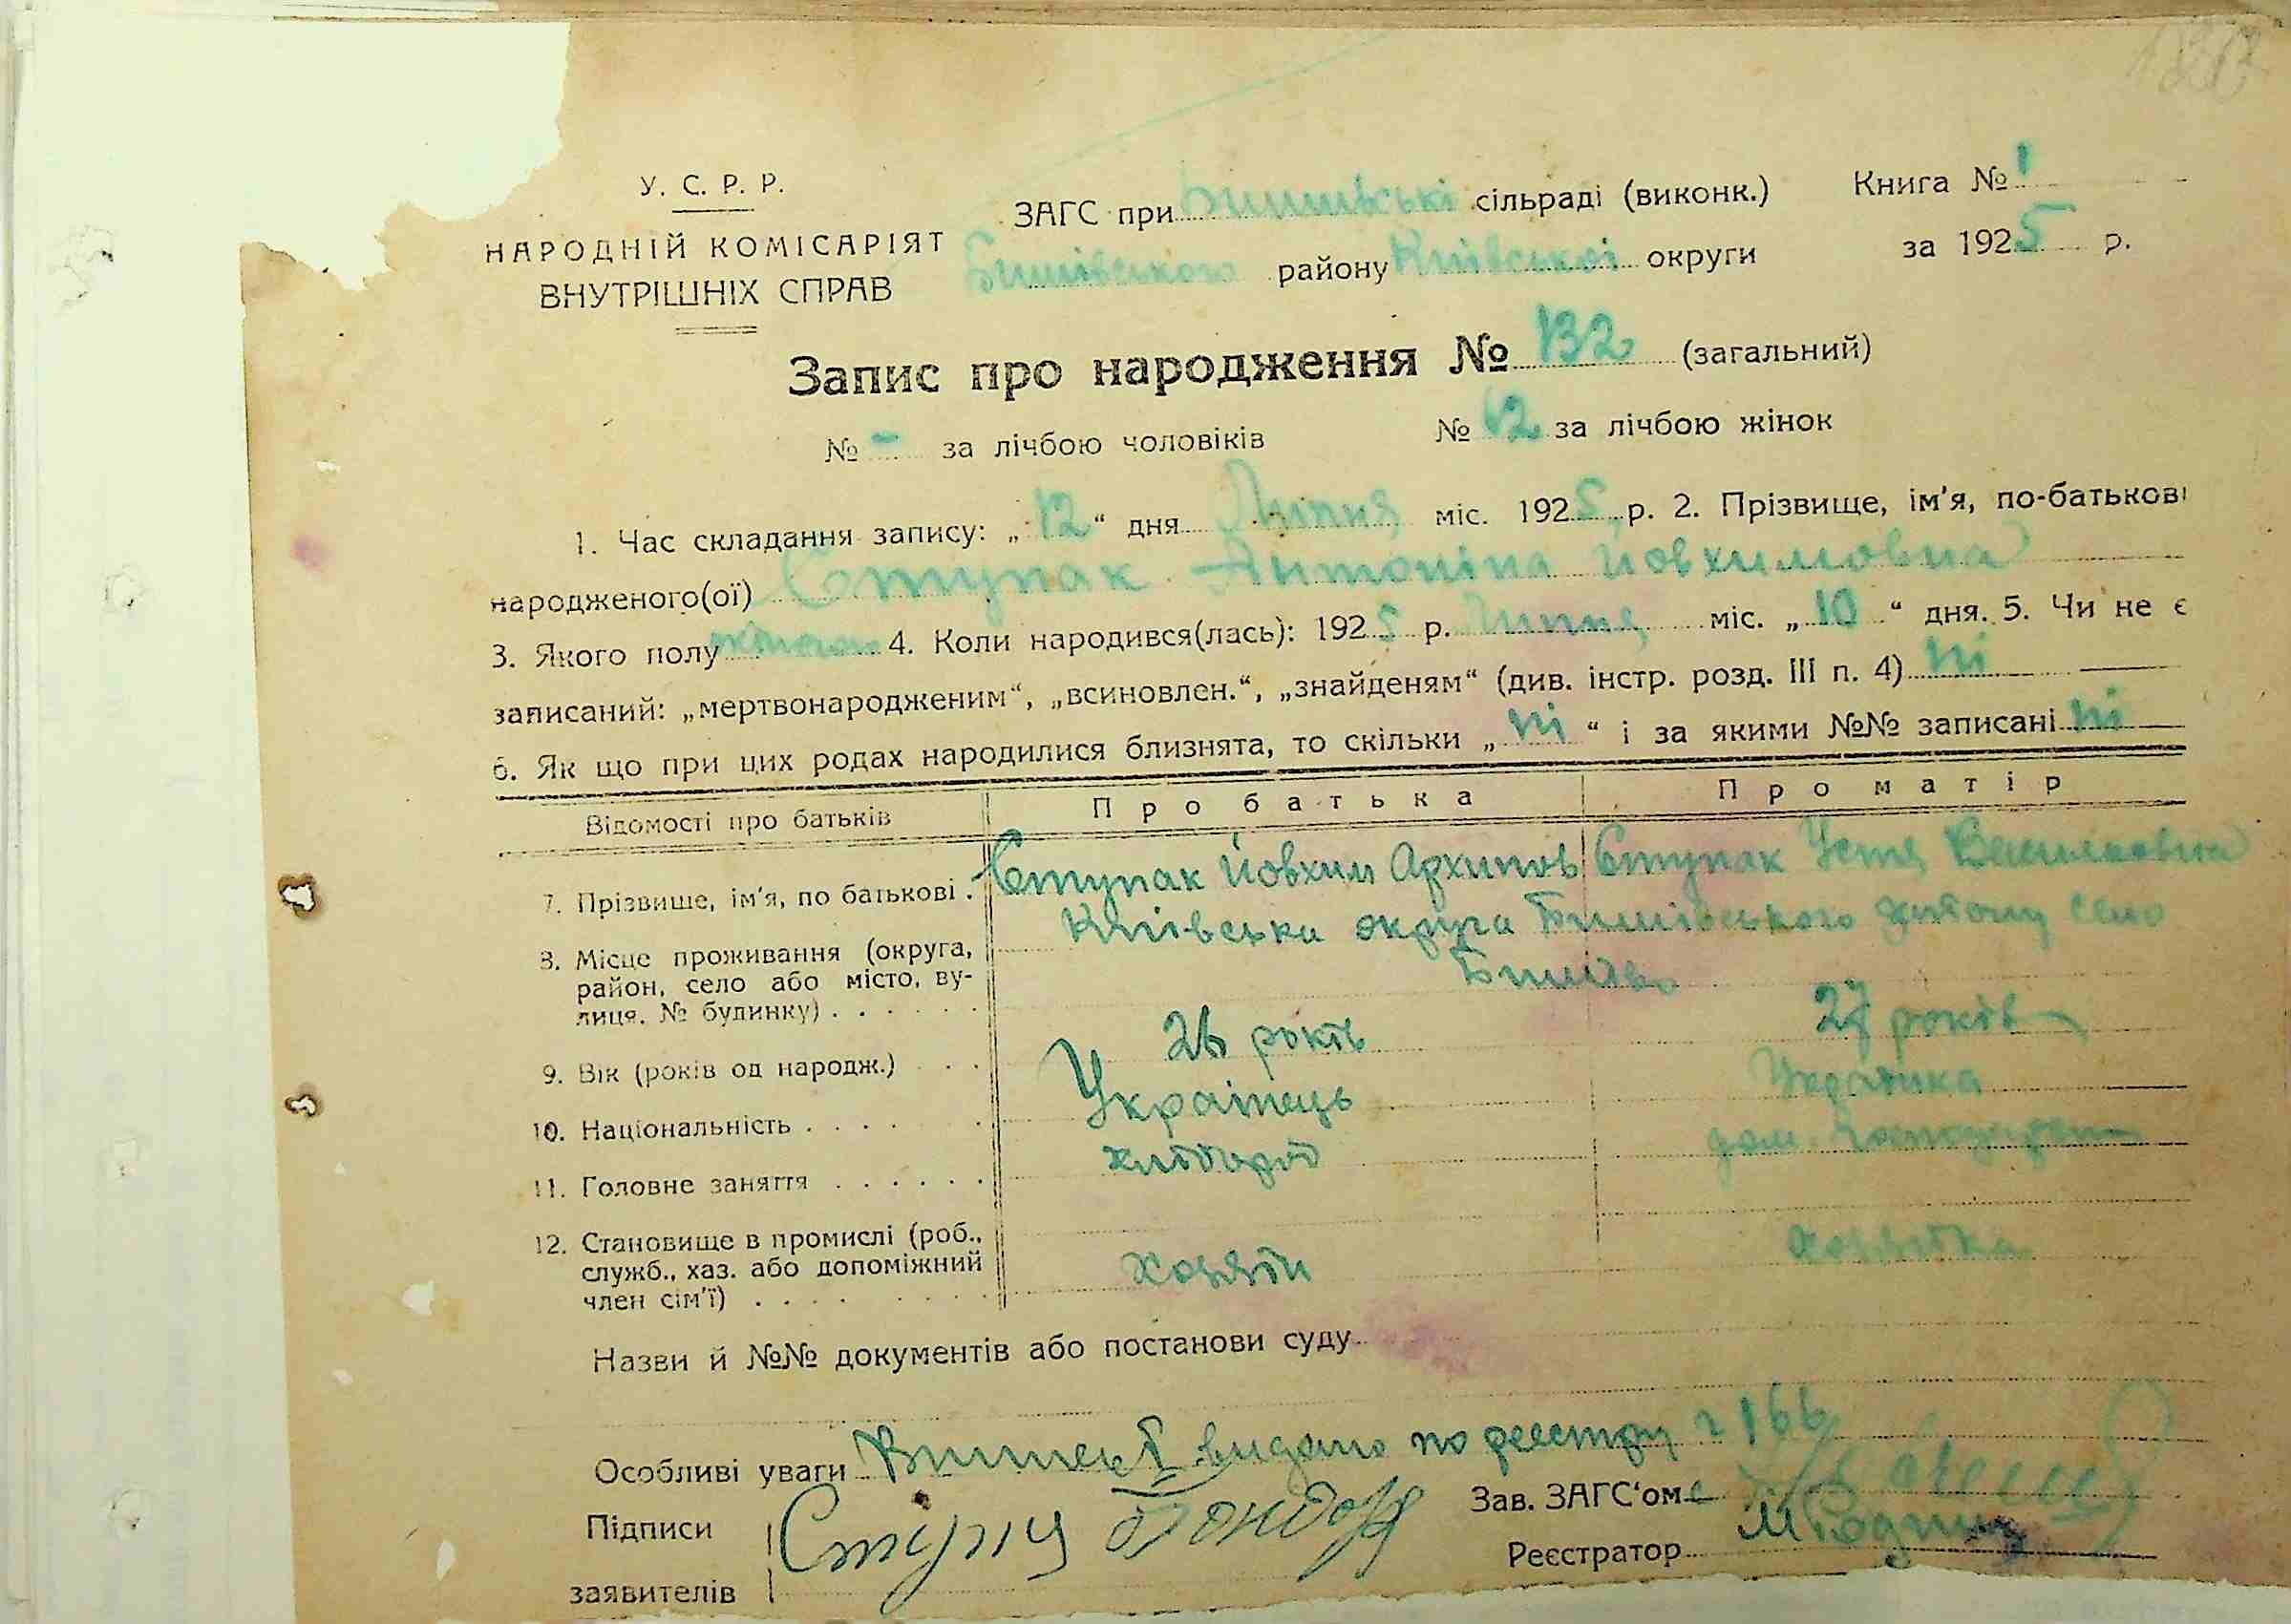 У. С. Р. Р.
НАРОДНІЙ КОМІСАРІЯТ
ВНУТРІШНІХ СПРАВ
ЗАГС при Бишівські сільраді (виконк.)
Бишівського району Київської округи
Книга № 1
за 1925 р.
Запис про народження № 132 (загальний)
№ - за лічбою чоловіків № 62 за лічбою жінок
1. Час складання запису: „12“ дня Липня міс. 1925 р. 2. Прізвище, ім'я, по-батькові
народженого(ої) Ступак Антоніна Йовхимовна
3. Якого полу 4. Коли народився(лась): 1925 р. Липня міс. „10“ дня. 5. Чи не є
записаний: „мертвонародженим“, „всиновлен.“, „знайденям“ (див. інстр. розд. III п. 4) ні
6. Як що при цих родах народилися близнята, то скільки „ні“ і за якими №№ записані ні
Відомості про батьків Про батька Про матір
7. Прізвише, ім'я, по батькові . Ступак Йовхим Архипов Ступак Устя Василковна
8. Місце проживання (округа, Київська округа Бишівського село
район, село або місто, ву-
лиця. № будинку) . . . . . .
9. Вік (років од народж.) . . . 26 років 27 років
10. Національність . . . . . Українець Українка
11. Головне заняття . . . . . . хлібороб дом.
12. Становище в промислі (роб.,
служб., хаз. або допоміжний хозяїн хозяйка
член сім'ї) . . . .
Назви й №№ документів або постанови суду
Особливі уваги видано по реестру 166
Підписи
заявителів
Зав. ЗАГС'ом
Реєстратор